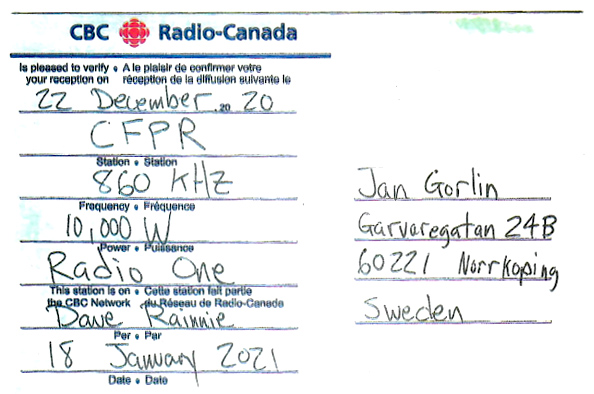 CBC Radio-Canada
Is pleased to verify • A le plaisir de confirmer votre
your reception on réception de la diffusion suivante le
22 December 20 20
CFPR
Station • Station
860 KHz
Frequency • Fréquence
10,000 W
Power • Puissance
Radio One
This station is on • Cette station fait partie
the CBC Network du Réseau de Radio-Canada
Dave Rainnie
Per • Par
18 January 2021
Date • Date
Jan Gorlin
Garvaregatan 24B
60221 Norrkoping
Sweden